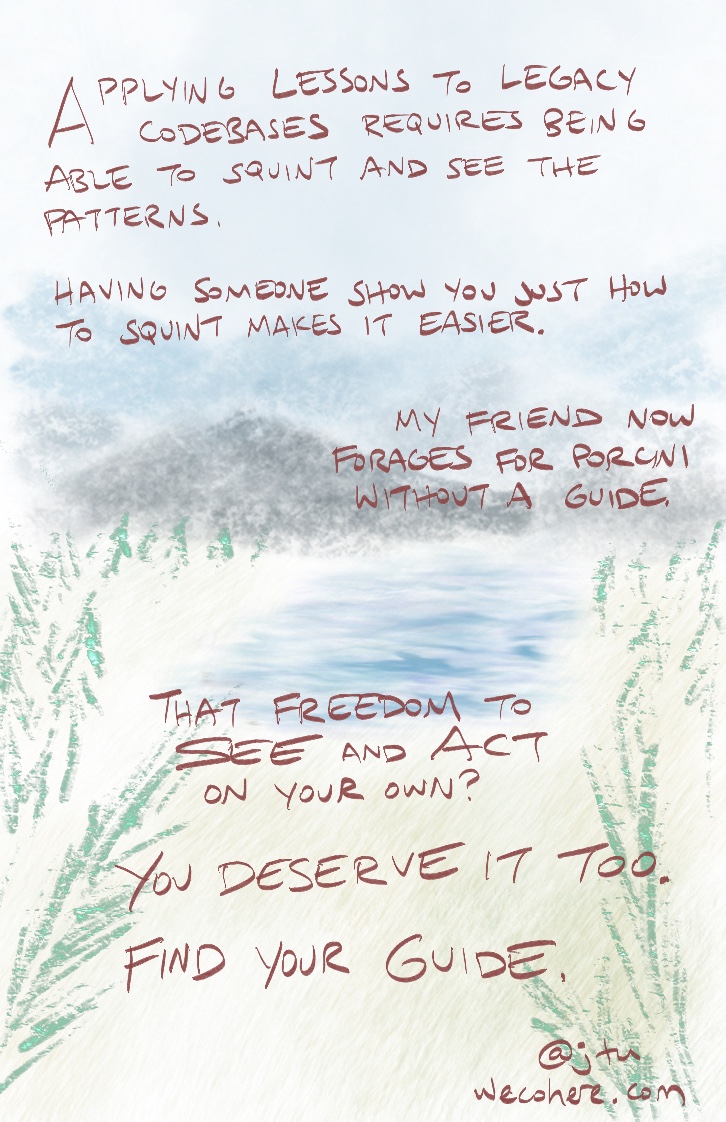 APPLYING LESSONS TO LEGACY
CODEBASES REQUIRES BEING
ABLE TO SQUINT AND SEE THE
PATTERNS.
HAVING SOMEONE SHOW YOU JUST HOW
TO SQUINT MAKES IT EASIER.
MY FRIEND NOW
FORAGES FOR PORCINI
WITHOUT A GUIDE.
THAT FREEDOM TO
SEE AND ACT
ON YOUR OWN?
YOU DESERVE IT TOO.
FIND YOUR GUIDE.
@jtu
wecohere.com